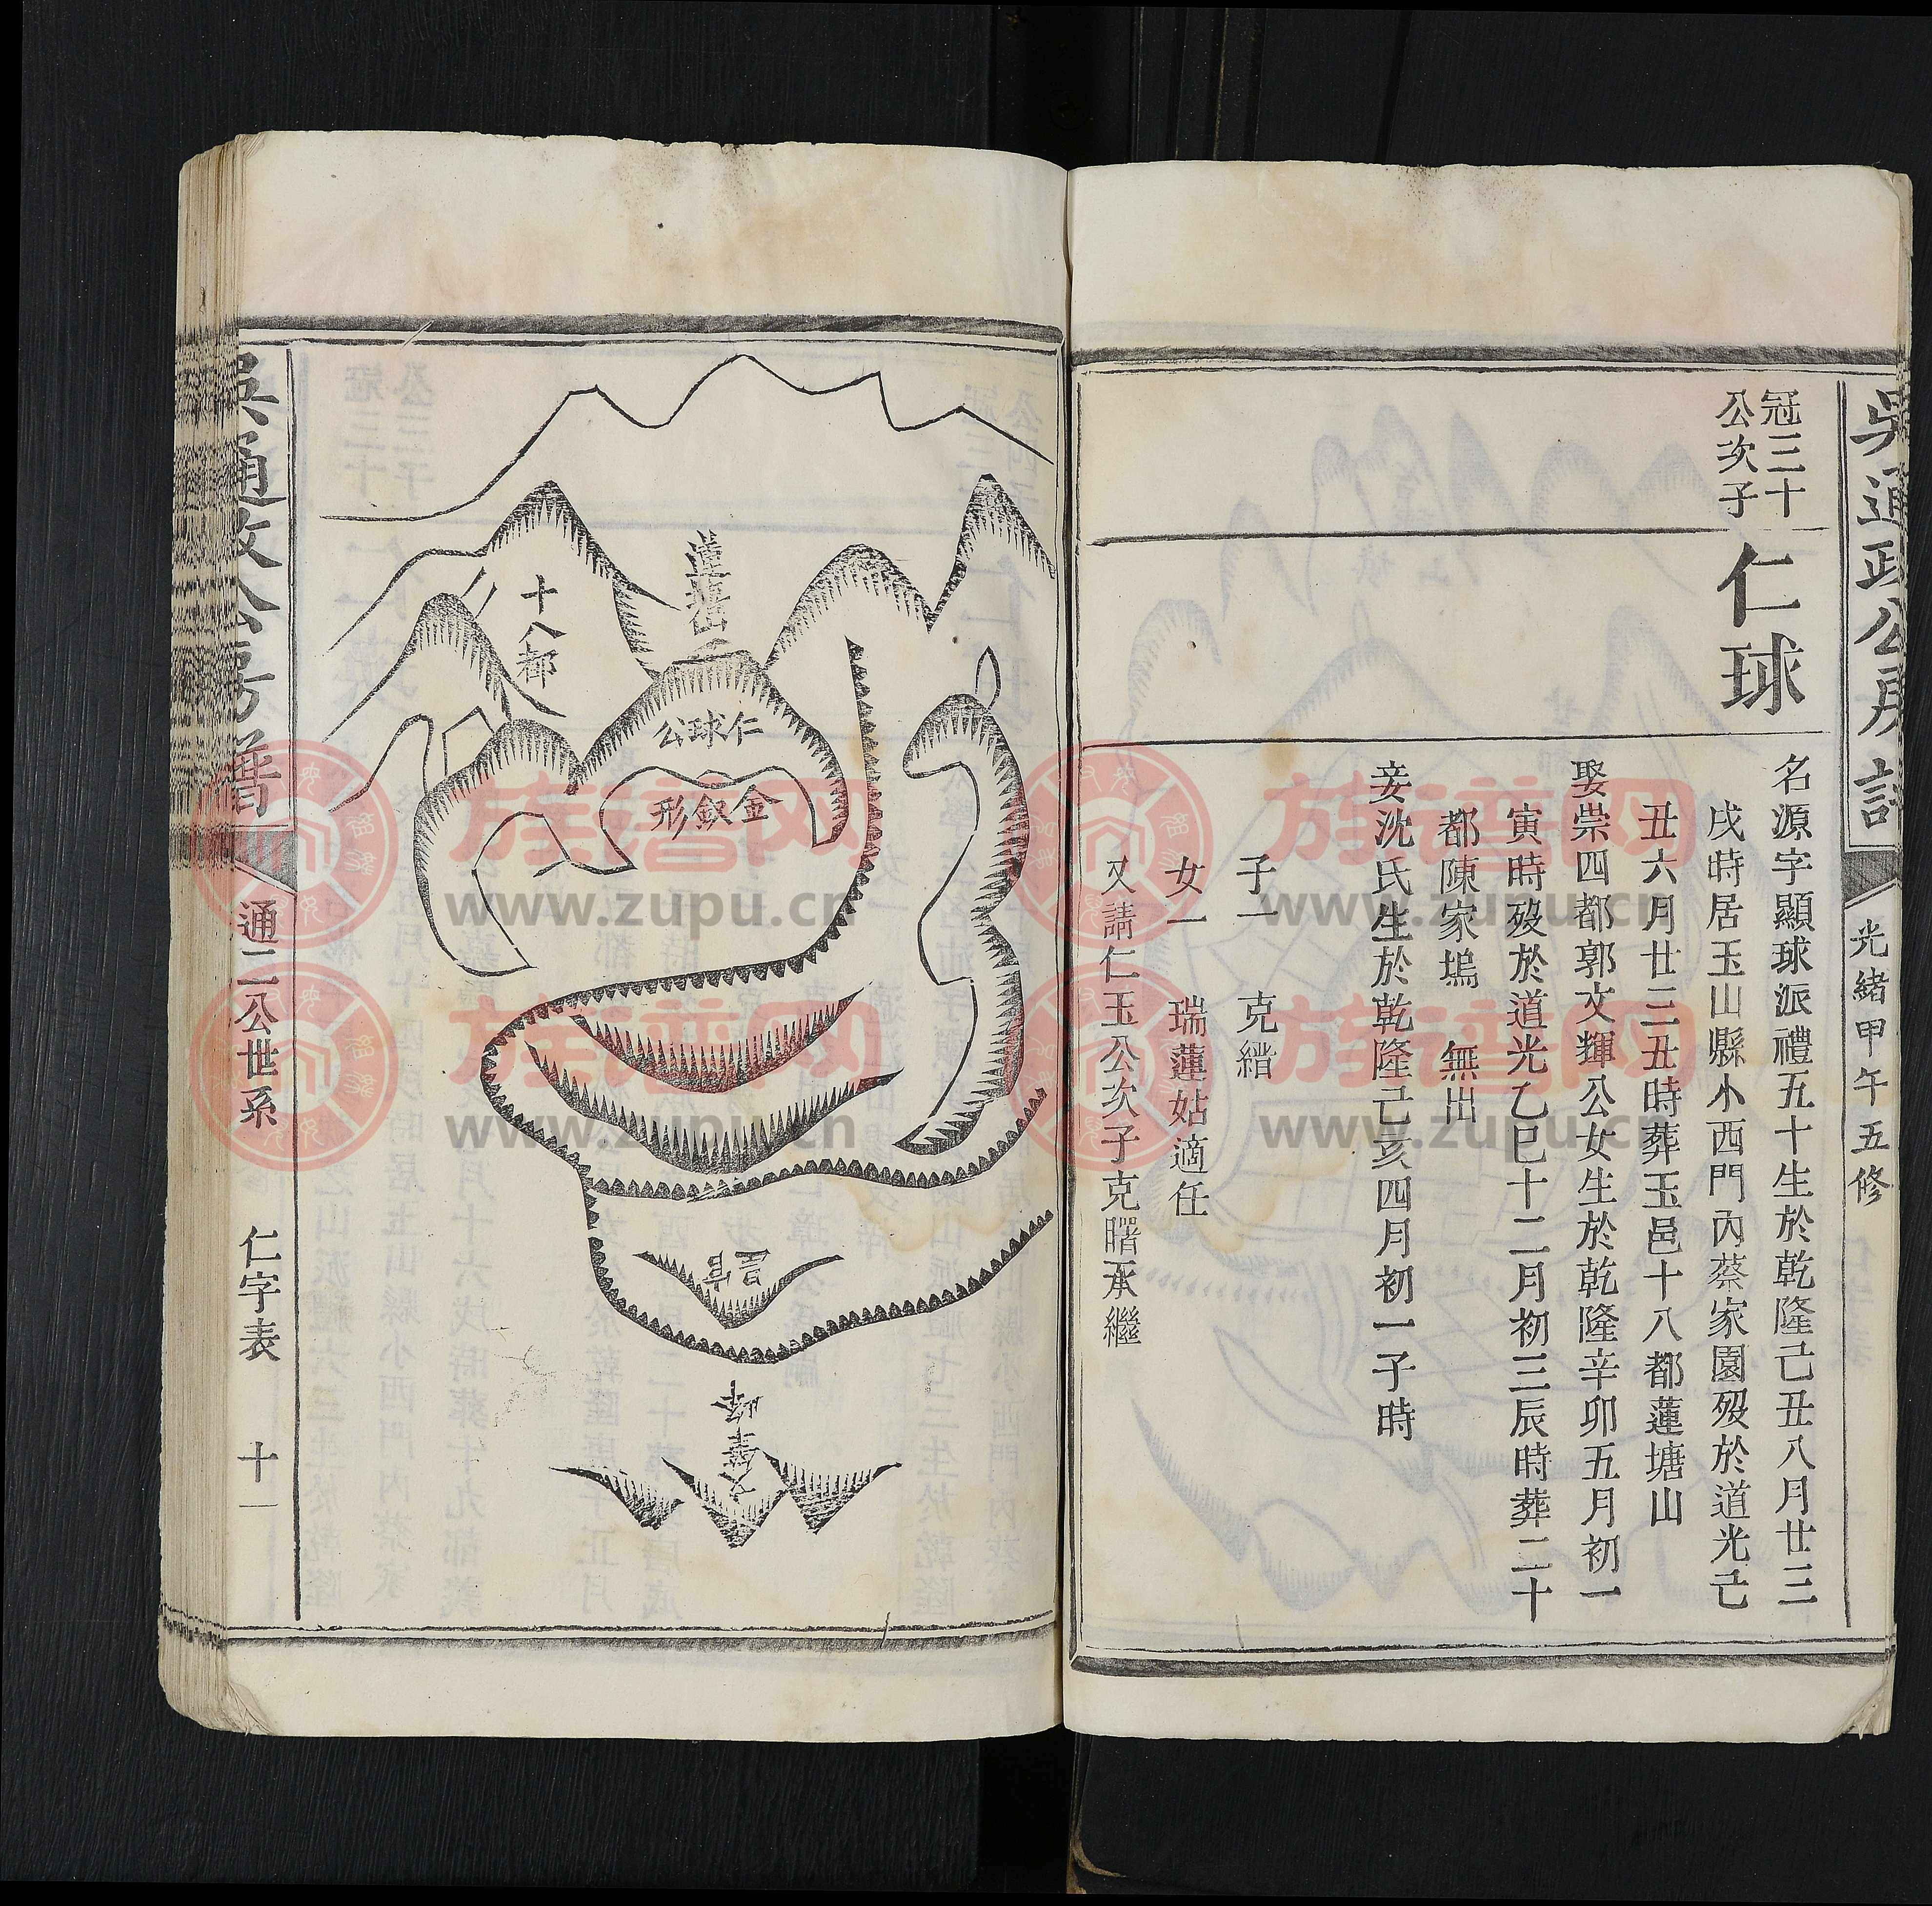 吳通政公房譜
光緒甲午五修
冠三十
公次子
仁球
名源字顯球派禮五十生於乾隆己丑八月廿三
戌時居玉山縣小西門內蔡家園歿於道光己
丑六月廿三丑時葬玉邑十八都蓮塘山
娶崇四都郭文輝公女生於乾隆辛卯五月初一
寅時歿於道光乙巳十二月初三辰時葬二十
都陳家塢 無出
妾沈氏生於乾隆己亥四月初一子時
子一 克縉
女一 瑞蓮姑適任
又請仁玉公次子克曙承繼
蓮塘山
十八都
仁球公
金釵形
官星
文筆峰
吳通政公房譜
通二公世系
仁字表
十一
族譜网
www.zupu.cn
族譜网
www.zupu.cn
族譜网
www.zupu.cn
族譜网
www.zupu.cn